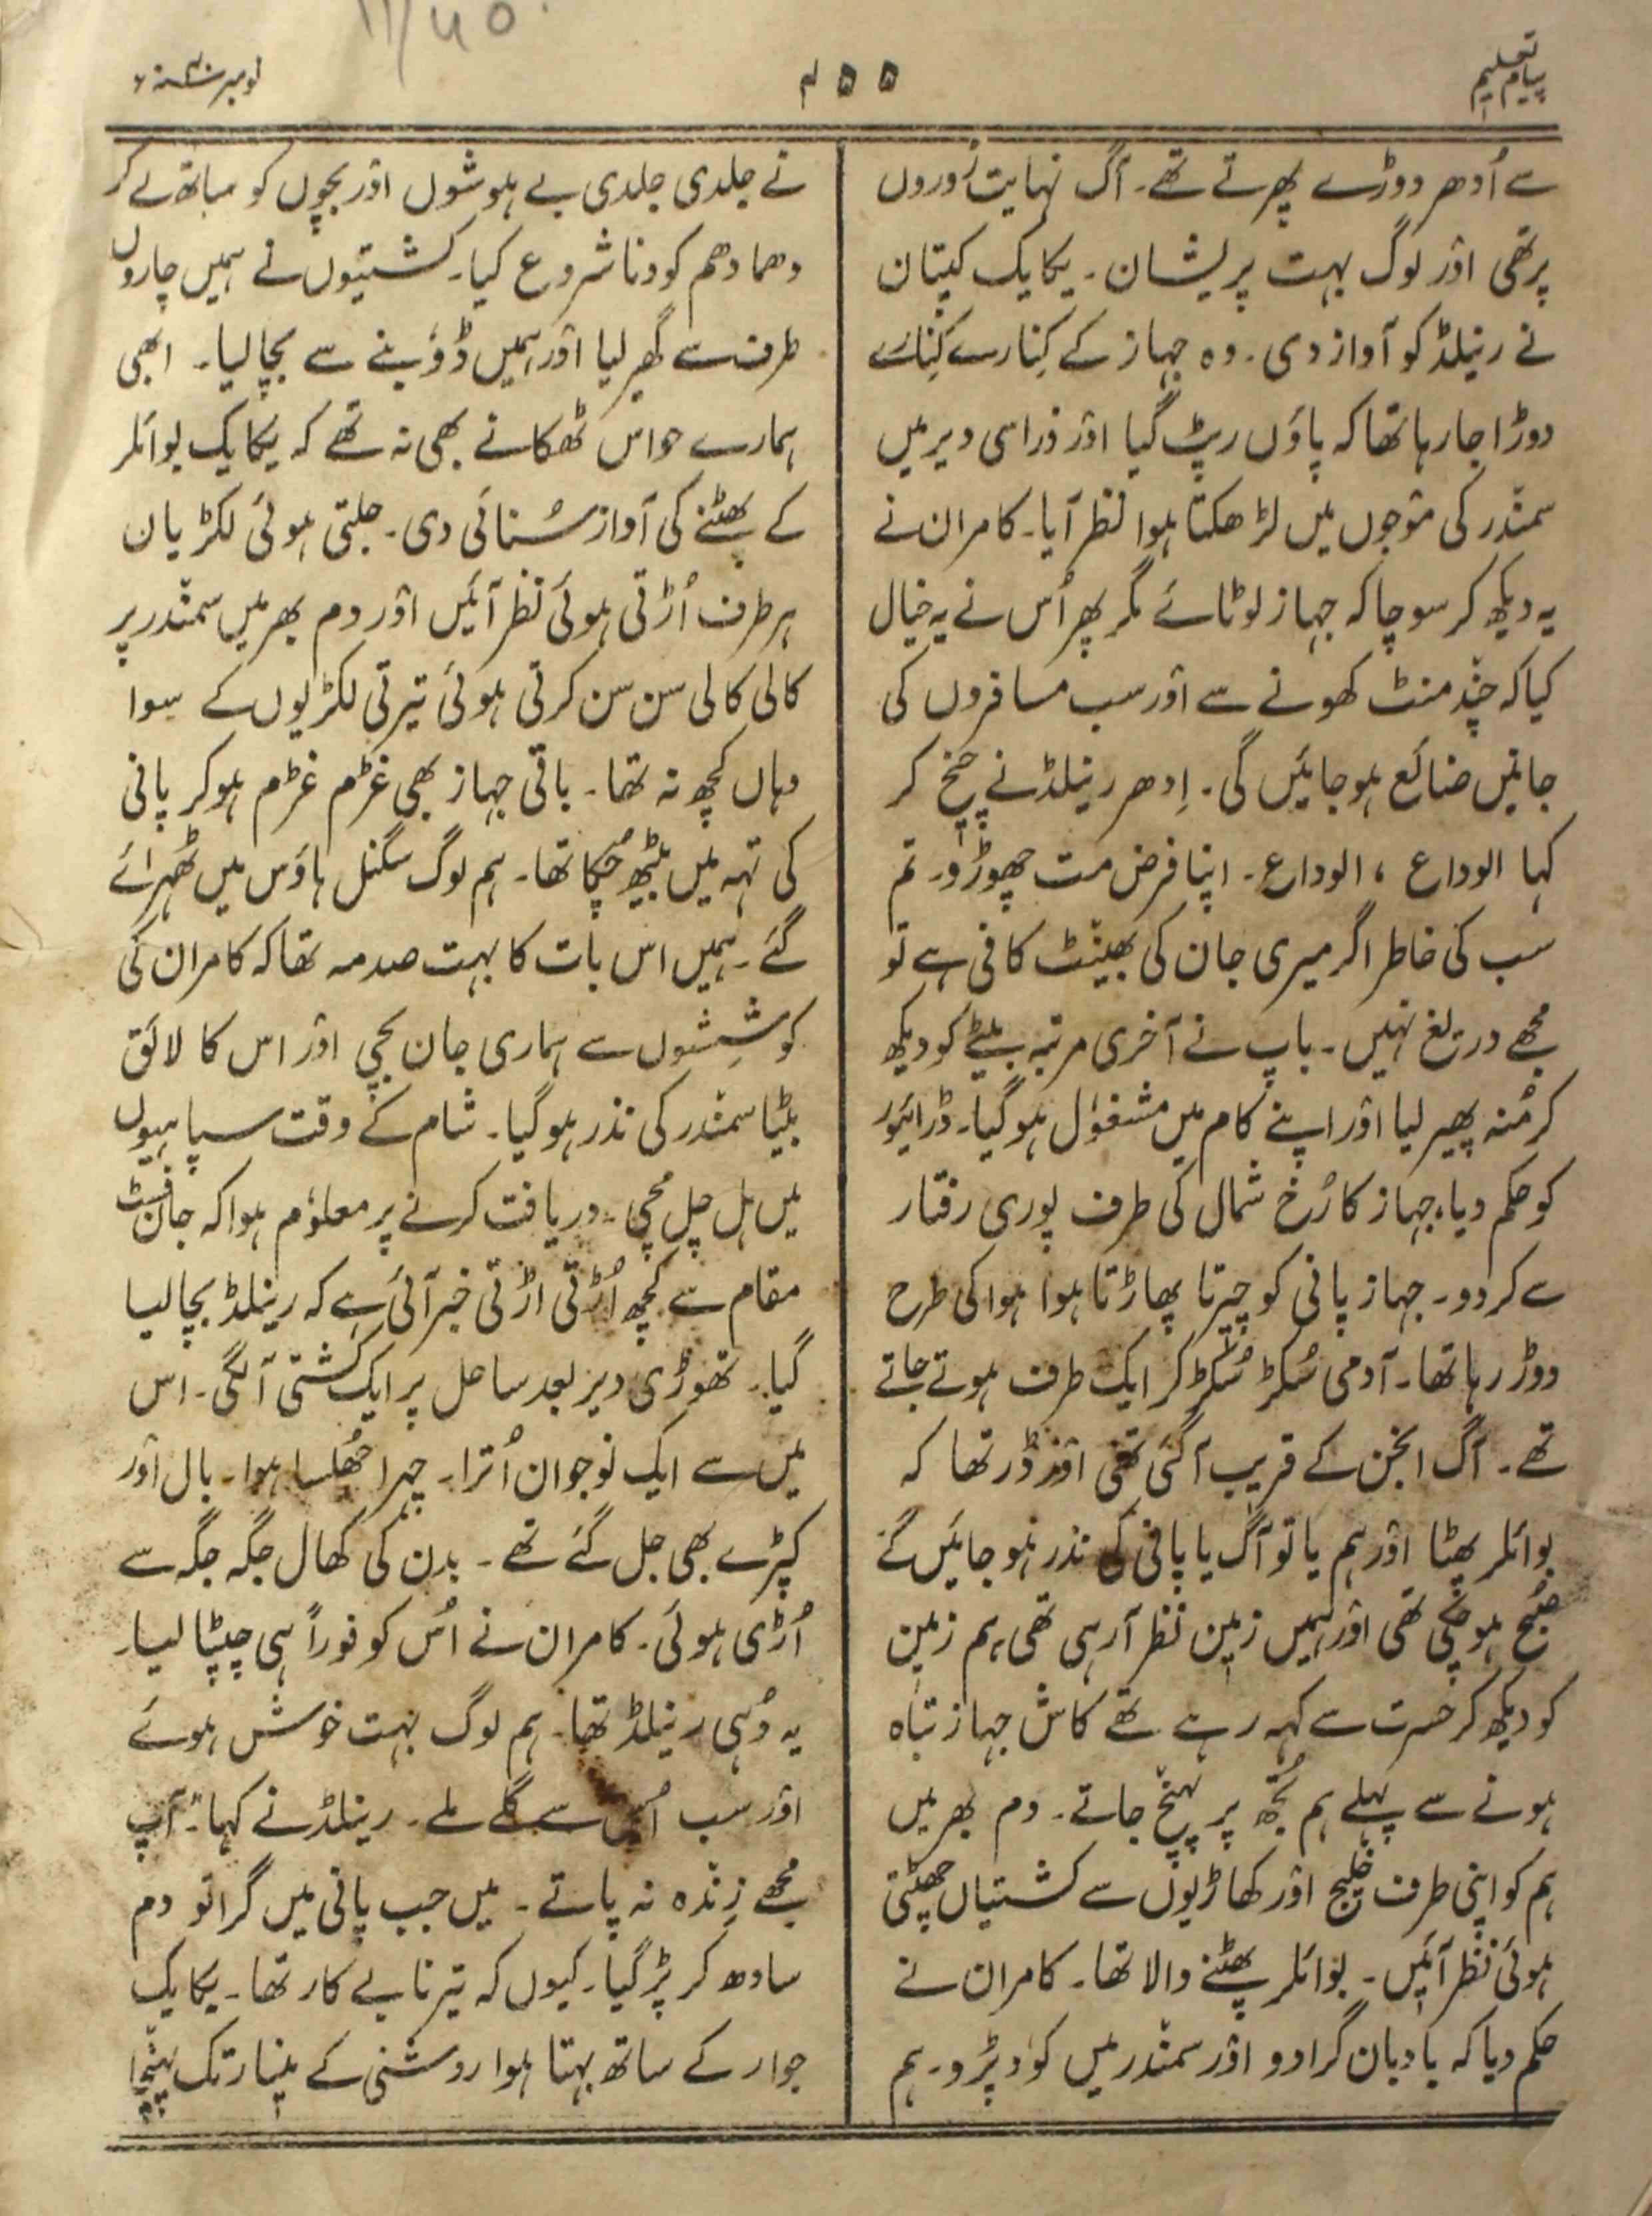 11/40
پیام تعلیم
۴۵۵
نومبر سنہ ۴۰ء
سے اُدھر دوڑے پھرتے تھے۔ آگ نہایت زوروں
پر تھی اور لوگ بہت پریشان۔ یکایک کپتان
نے رینلڈ کو آواز دی۔ وہ جہاز کے کنارے کنارے
دوڑا جارہا تھا کہ پاؤں رپٹ گیا اور ذراسی دیر میں
سمندر کی موجوں میں لڑھکتا ہوا نظر آیا۔ کامران نے
یہ دیکھ کر سوچا کہ جہاز لوٹائے مگر پھر اُس نے یہ خیال
کیا کہ چند منٹ کھونے سے اور سب مسافروں کی
جانیں ضائع ہوجائیں گی۔ اِدھر رینلڈ نے چیخ کر
کہا الوداع ، الوداع۔ اپنا فرض مت چھوڑو۔ تم
سب کی خاطر اگر میری جان کی بھینٹ کافی ہے تو
مجھے دریغ نہیں۔ باپ نے آخری مرتبہ بیٹے کو دیکھ
کر مُنہ پھیر لیا اور اپنے کام میں مشغول ہوگیا۔ ڈرائیور
کو حکم دیا، جہاز کا رُخ شمال کی طرف پوری رفتار
سے کر دو۔ جہاز پانی کو چیرتا پھاڑتا ہوا ہوا کی طرح
دوڑ رہا تھا۔ آدمی سُکڑ سُکڑ کر ایک طرف ہوتے جاتے
تھے۔ آگ انجن کے قریب آگئی تھی اور ڈر تھا کہ
بوائلر پھٹا اور ہم یا تو آگ یا پانی کی نذر ہو جائیں گے
صُبح ہوچکی تھی اور ہمیں زمین نظر آرہی تھی، ہم زمین
کو دیکھ کر حسرت سے کہہ رہے تھے کاش جہاز تباہ
ہونے سے پہلے ہم تُجھ پر پہنچ جاتے۔ دم بھر میں
ہم کو اپنی طرف خلیج اور کھاڑیوں سے کشتیاں جھپٹتی
ہوئی نظر آئیں۔ بوائلر پھٹنے والا تھا۔ کامران نے
حکم دیا کہ بادبان گرادو اور سمندر میں کود پڑو۔ ہم
نے جلدی جلدی بے ہوشوں اور بچوں کو ساتھ لے کر
دھما دھم کودنا شروع کیا۔ کشتیوں نے ہمیں چاروں
طرف سے گھیر لیا اور ہمیں ڈوبنے سے بچا لیا۔ ابھی
ہمارے حواس ٹھکانے بھی نہ تھے کہ یکایک بوائلر
کے پھٹنے کی آواز سُنائی دی۔ جلتی ہوئی لکڑیاں
ہر طرف اُڑتی ہوئی نظر آئیں اور دم بھر میں سمندر پر
کالی کالی سن سن کرتی ہوئی تیرتی لکڑیوں کے سوا
وہاں کچھ نہ تھا۔ باقی جہاز بھی غڑم غڑم ہوکر پانی
کی تہہ میں بیٹھ چُکا تھا۔ ہم لوگ سگنل ہاؤس میں ٹھہرائے
گئے۔ ہمیں اس بات کا بہت صدمہ تھا کہ کامران کی
کوششوں سے ہماری جان بچی اور اس کا لائق
بیٹا سمندر کی نذر ہوگیا۔ شام کے وقت سپاہیوں
میں ہل چل مچی۔ دریافت کرنے پر معلوم ہوا کہ جان فسٹ
مقام سے کچھ اُڑتی اڑتی خبر آئی ہے کہ رینلڈ بچا لیا
گیا۔ تھوڑی دیر بعد ساحل پر ایک کشتی آلگی۔ اس
میں سے ایک نوجوان اُترا۔ چہرا جھُلسا ہوا۔ بال اور
کپڑے بھی جل گئے تھے۔ بدن کی کھال جگہ جگہ سے
اُڑی ہوئی۔ کامران نے اُس کو فوراً ہی چپٹا لیا۔
یہ وُہی رینلڈ تھا۔ ہم لوگ بہت خوش ہوئے
اور سب اُس سے گلے ملے۔ رینلڈ نے کہا۔ "آپ
مجھے زندہ نہ پاتے۔ میں جب پانی میں گرا تو دم
سادھ کر پڑ گیا۔ کیوں کہ تیرنا بے کار تھا۔ یکایک
جوار کے ساتھ بہتا ہوا روشنی کے مینار تک پہنچا